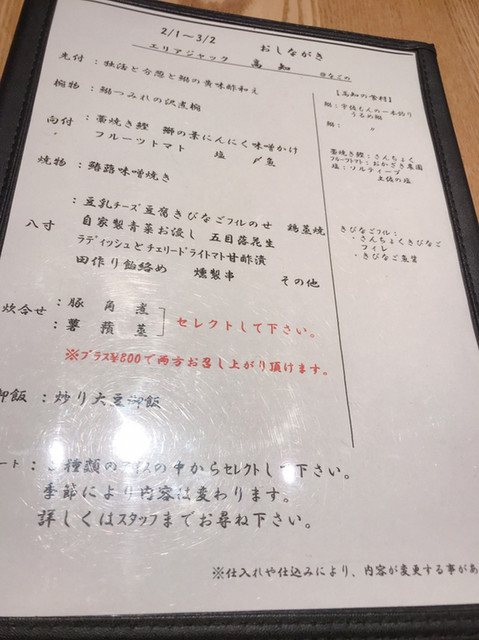 2/1～3/2 おしながき
エリアジャック 高知
先付：独活と分葱と鰤の黄味酢和え
椀物：鰤つみれの沢煮椀
向付：藁焼き鰹 鰤の葉にんにく味噌かけ
フルーツトマト 塩 〆魚
焼物：鰆蕗味噌焼き
八寸：豆乳チーズ豆腐きびなごフィレのせ 鶏茎焼
自家製青菜お浸し 五目落花生
ラディッシュとチェリードライトマト甘酢漬
田作り飴絡め 燻製串 その他
炊合せ：豚角煮
：薯蕷蒸
セレクトして下さい。
※プラス¥800で両方お召し上がり頂けます。
御飯：炒り大豆御飯
ート：　種類の　　スの中からセレクトして下さい。
季節により内容は変わります。
詳しくはスタッフまでお尋ね下さい。
※仕入れや仕込みにより、内容が変更する事があ
【高知の食材】
鰤：宇佐もんの一本釣り
うるめ鰯
鰤：　〃
藁焼き鰹：さんちょく
フルーツトマト：おかざき農園
塩：ソルティーブ
土佐の塩
きびなごフィレ：
・さんちょくきびなご
フィレ
・きびなご魚醤